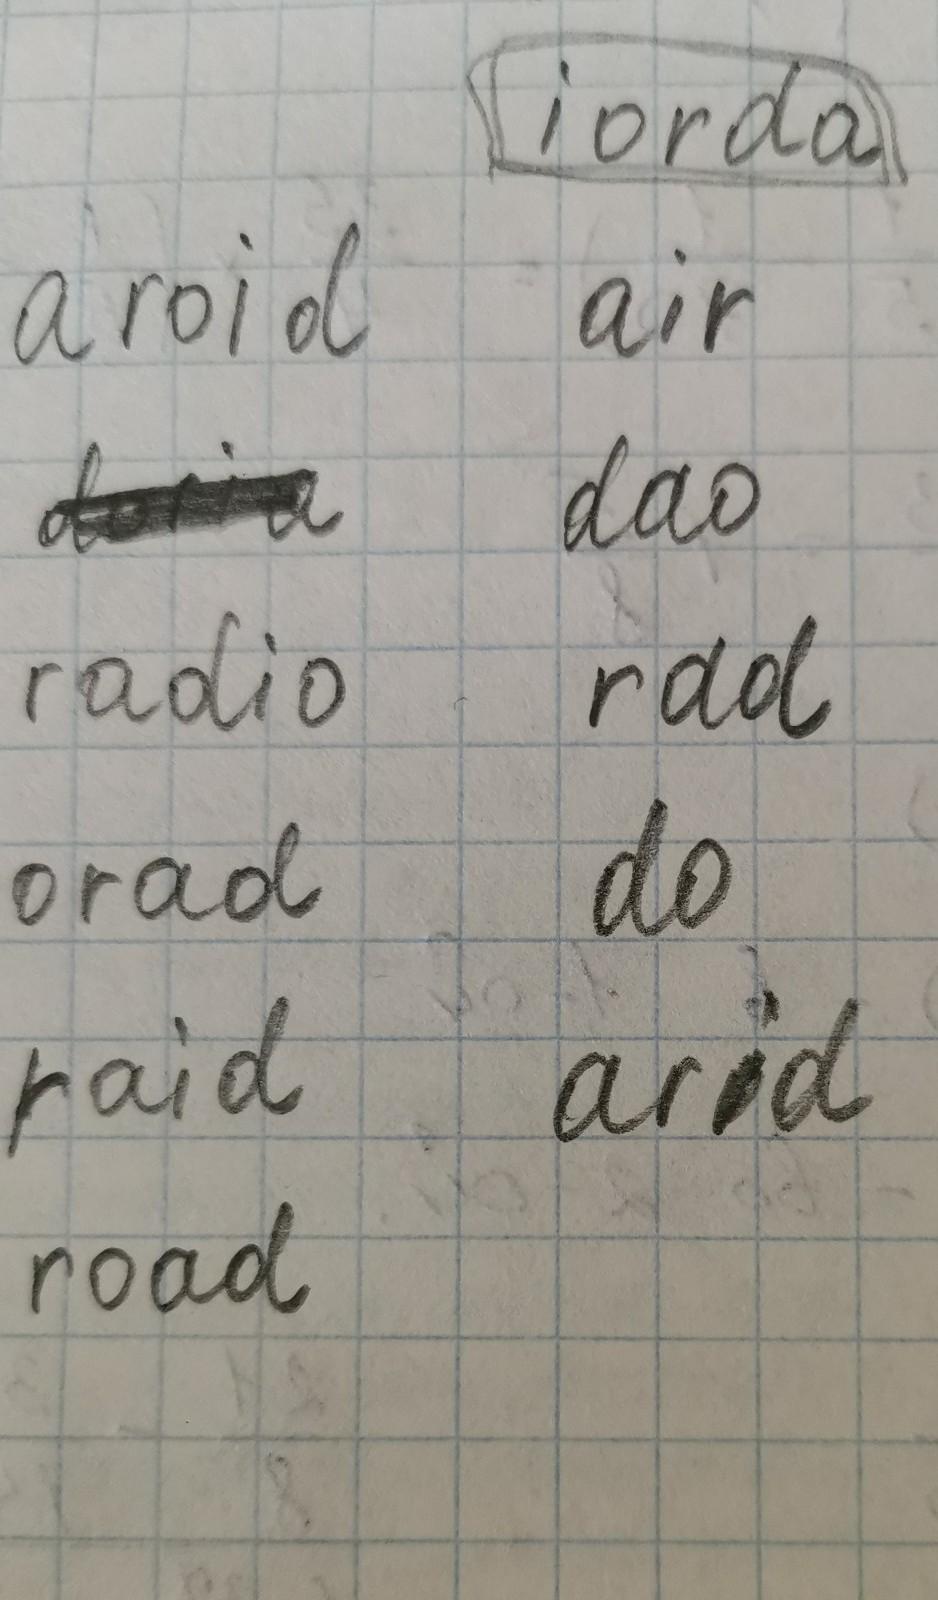 iorda
aroid air
doria dao
radio rad
orad do
raid arid
road